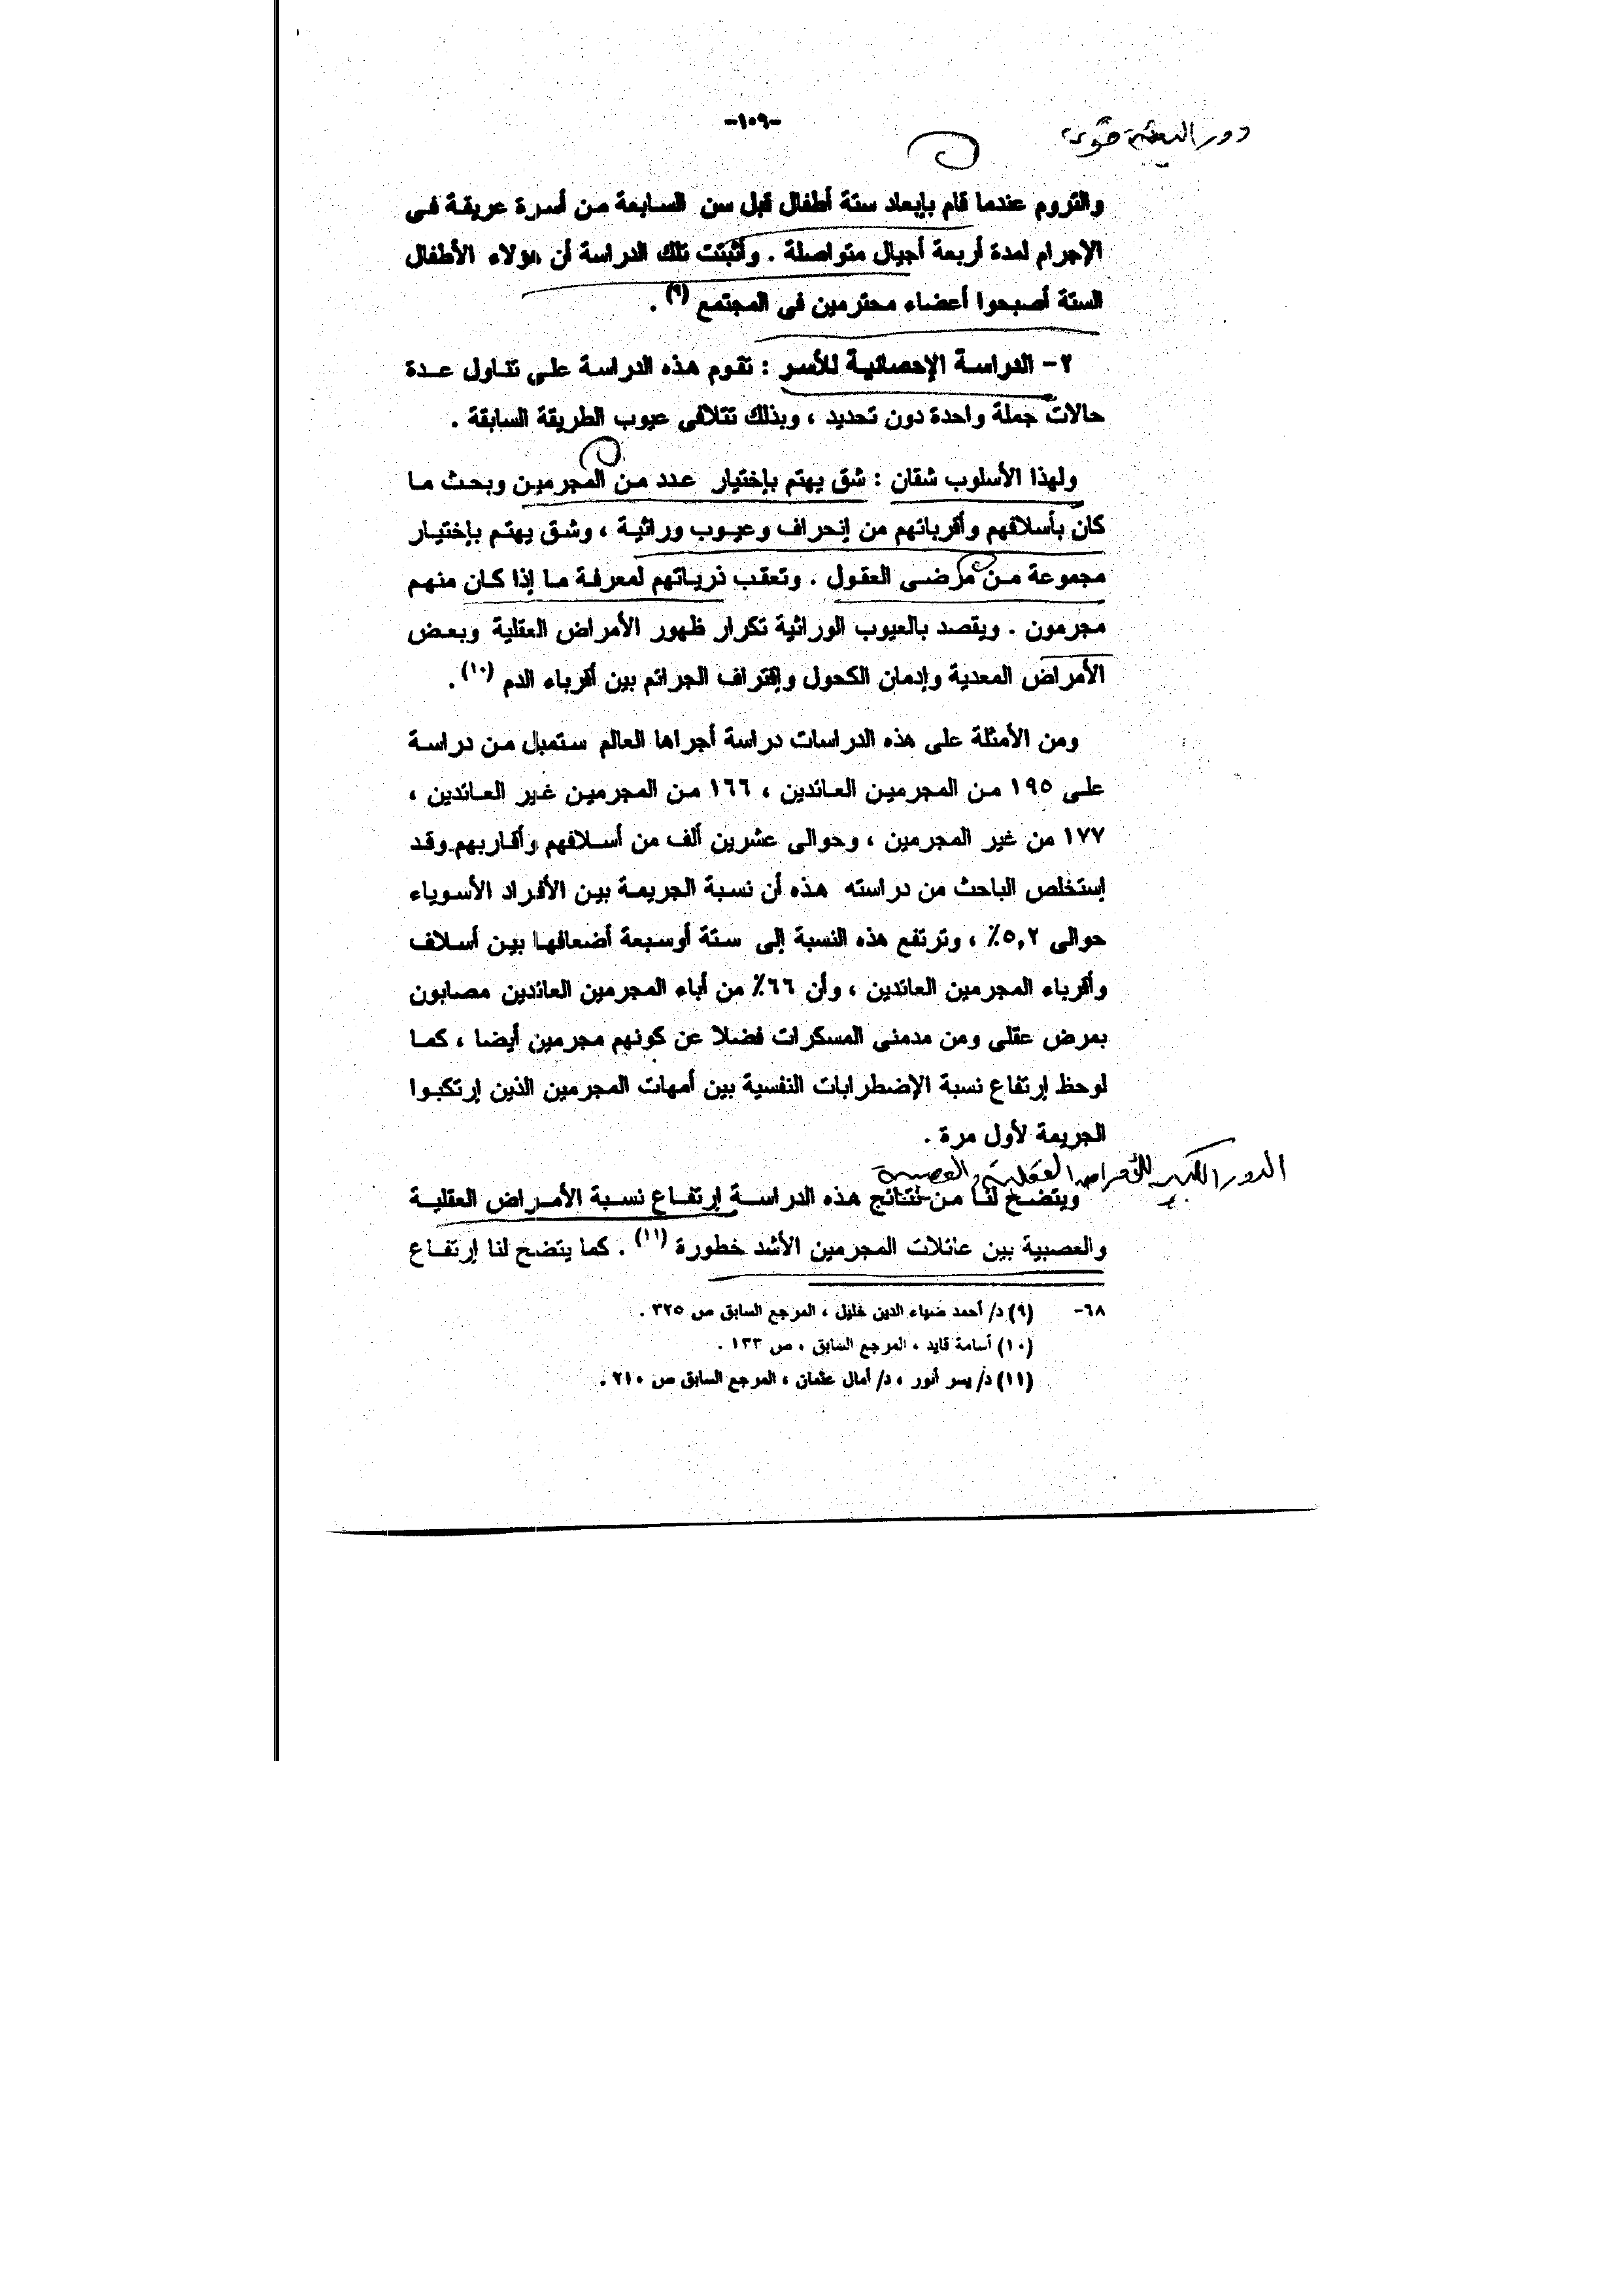 -١٠٩-
دور البيئة قوى
والتروم عندما قام بإبعاد ستة أطفال قبل سن السابعة من أسرة عريقة فى
الإجرام لمدة أربعة أجيال متواصلة . وأثبتت تلك الدراسة أن هؤلاء الأطفال
الستة أصبحوا أعضاء محترمين فى المجتمع (٩) .
٢- الدراسة الإحصائية للأسر : تقوم هذه الدراسة على تتاول عدة
حالات جملة واحدة دون تحديد ، وبذلك تتلافى عيوب الطريقة السابقة .
ولهذا الأسلوب شقان : شق يهتم بإختيار عدد من المجرمين وبحث ما
كان بأسلافهم وأقربائهم من إنحراف وعيوب وراثية ، وشق يهتم بإختيار
مجموعة من مرضى العقول . وتعقب ذرياتهم لمعرفة ما إذا كان منهم
مجرمون . ويقصد بالعيوب الوراثية تكرار ظهور الأمراض العقلية وبعض
الأمراض المعدية وإدمان الكحول وإقتراف الجرائم بين أقرباء الدم (١٠) .
ومن الأمثلة على هذه الدراسات دراسة أجراها العالم ستمبل من دراسة
على ١٩٥ من المجرمين العائدين ، ١٦٦ من المجرمين غير العائدين ،
١٧٧ من غير المجرمين ، وحوالى عشرين ألف من أسلافهم وأقاربهم وقد
إستخلص الباحث من دراسته هذه أن نسبة الجريمة بين الأفراد الأسوياء
حوالى ٥,٢٪ ، وترتفع هذه النسبة إلى ستة أوسبعة أضعافها بين أسلاف
وأقرباء المجرمين العائدين ، وأن ٦٦٪ من أباء المجرمين العائدين مصابون
بمرض عقلى ومن مدمنى المسكرات فضلا عن كونهم مجرمين أيضا ، كما
لوحظ إرتفاع نسبة الإضطرابات النفسية بين أمهات المجرمين الذين إرتكبوا
الجريمة لأول مرة .
الدور الكبير للأمراض العقلية والعصبية
ويتضح لنا من نتائج هذه الدراسة إرتفاع نسبة الأمراض العقلية
والعصبية بين عائلات المجرمين الأشد خطورة (١١) . كما يتضح لنا إرتفاع
٦٨- (٩) د/ أحمد ضياء الدين خليل ، المرجع السابق ص ٣٢٥ .
(١٠) أسامة قايد ، المرجع السابق ، ص ١٣٣ .
(١١) د/ يسر أنور ، د/ أمال عثمان ، المرجع السابق ص ٢١٠ .